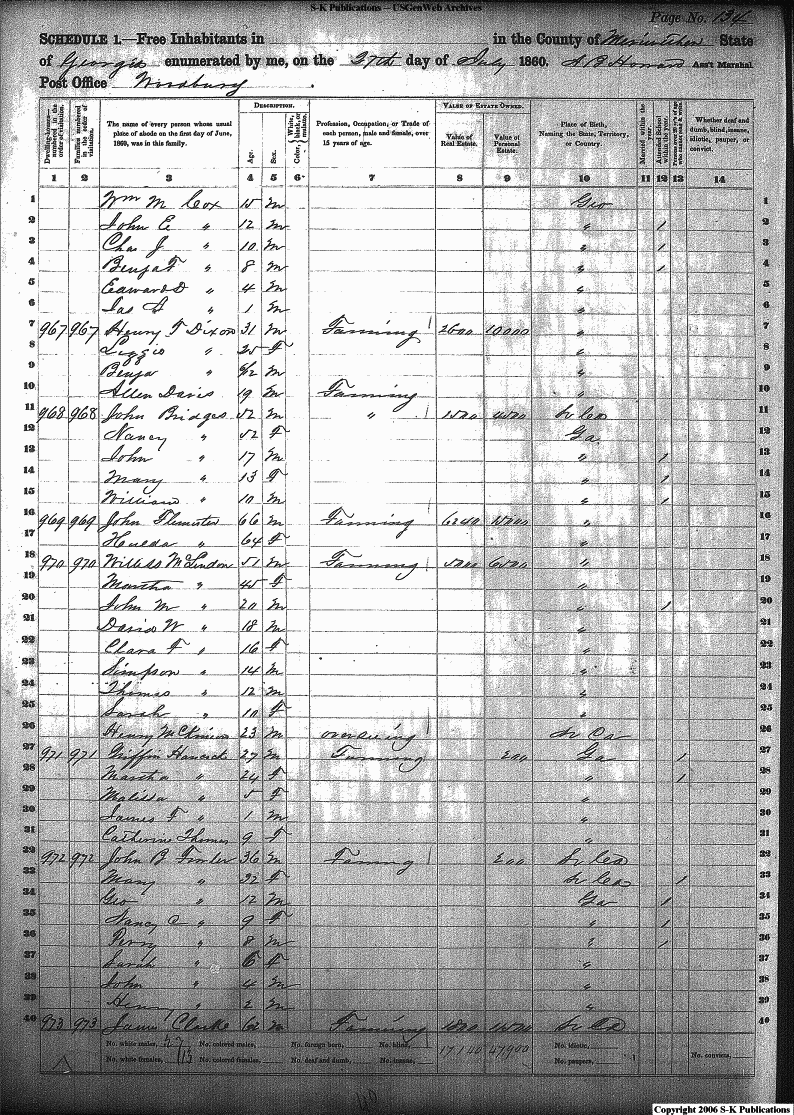 S-K Publications – USGenWeb Archives
Page No. 134
SCHEDULE 1.—Free Inhabitants in in the County of Meriwether State
of Georgia enumerated by me, on the 27th day of July 1860. Ass't Marshal
Post Office Woodbury
Dwelling-houses—numbered in the order of visitation.
Families numbered in the order of visitation.
The name of every person whose usual place of abode on the first day of June, 1860, was in this family.
DESCRIPTION.
Age.
Sex.
Color, White, black, or mulatto.
Profession, Occupation, or Trade of each person, male and female, over 15 years of age.
VALUE OF ESTATE OWNED.
Value of Real Estate.
Value of Personal Estate.
Place of Birth, Naming the State, Territory, or Country.
Married within the year.
Attended School within the year.
Persons over 20 y'rs of age who cannot read & write.
Whether deaf and dumb, blind, insane, idiotic, pauper, or convict.
1 2 3 4 5 6 7 8 9 10 11 12 13 14
1 Wm M Cox 15 M Geo 1
2 John E " 12 M " / 2
3 Chas J " 10 M " / 3
4 Benja F " 8 M " / 4
5 Edward D " 4 M " 5
6 Jas " 1 M " 6
7 967 967 Henry T Dixon 31 M Farming 2600 10000 " 7
8 Lizzie " 25 F " 8
9 Benja " M " 9
10 Allen Davis 19 M Farming " 10
11 968 968 John Bridges 52 M " 1500 4500 11
12 Nancy " 52 F Ga. 12
13 John " 17 M " / 13
14 Mary " 13 F " / 14
15 William " 10 M " / 15
16 969 969 John Flemister 66 M Farming 6240 " 16
17 " 64 F " 17
18 970 970 Willis McLendon 51 M Farming 6500 " 18
19 Martha " 45 F " 19
20 John M " 20 M " / 20
21 David W " 18 M " 21
22 Clara F " 16 F " 22
23 Simpson " 14 M " 23
24 Thomas " 12 M " 24
25 Sarah " 10 F " 25
26 Henry 23 M 26
27 971 971 Griffin Hancock 27 M Farming 200 Ga / 27
28 Martha " 24 F " / 28
29 Malissa " 5 F " 29
30 James F " 1 M " 30
31 Catherine Thomas 9 F " 31
32 972 972 John B 36 M Farming 200 32
33 Mary " 32 F / 33
34 Geo " 12 M Ga / 34
35 Nancy C " 9 F " / 35
36 Perry " 8 M " / 36
37 Sarah " 6 F " 37
38 John " 4 M " 38
39 Henry " 2 M " 39
40 973 973 James Clarke 62 M Farming 40
No. white males, 27 No. colored males, No. foreign born, No. blind, 17,140 47,900 No. idiotic, No. convicts,
No. white females, 13 No. colored females, No. deaf and dumb, No. insane, No. paupers,
Copyright 2006 S-K Publications